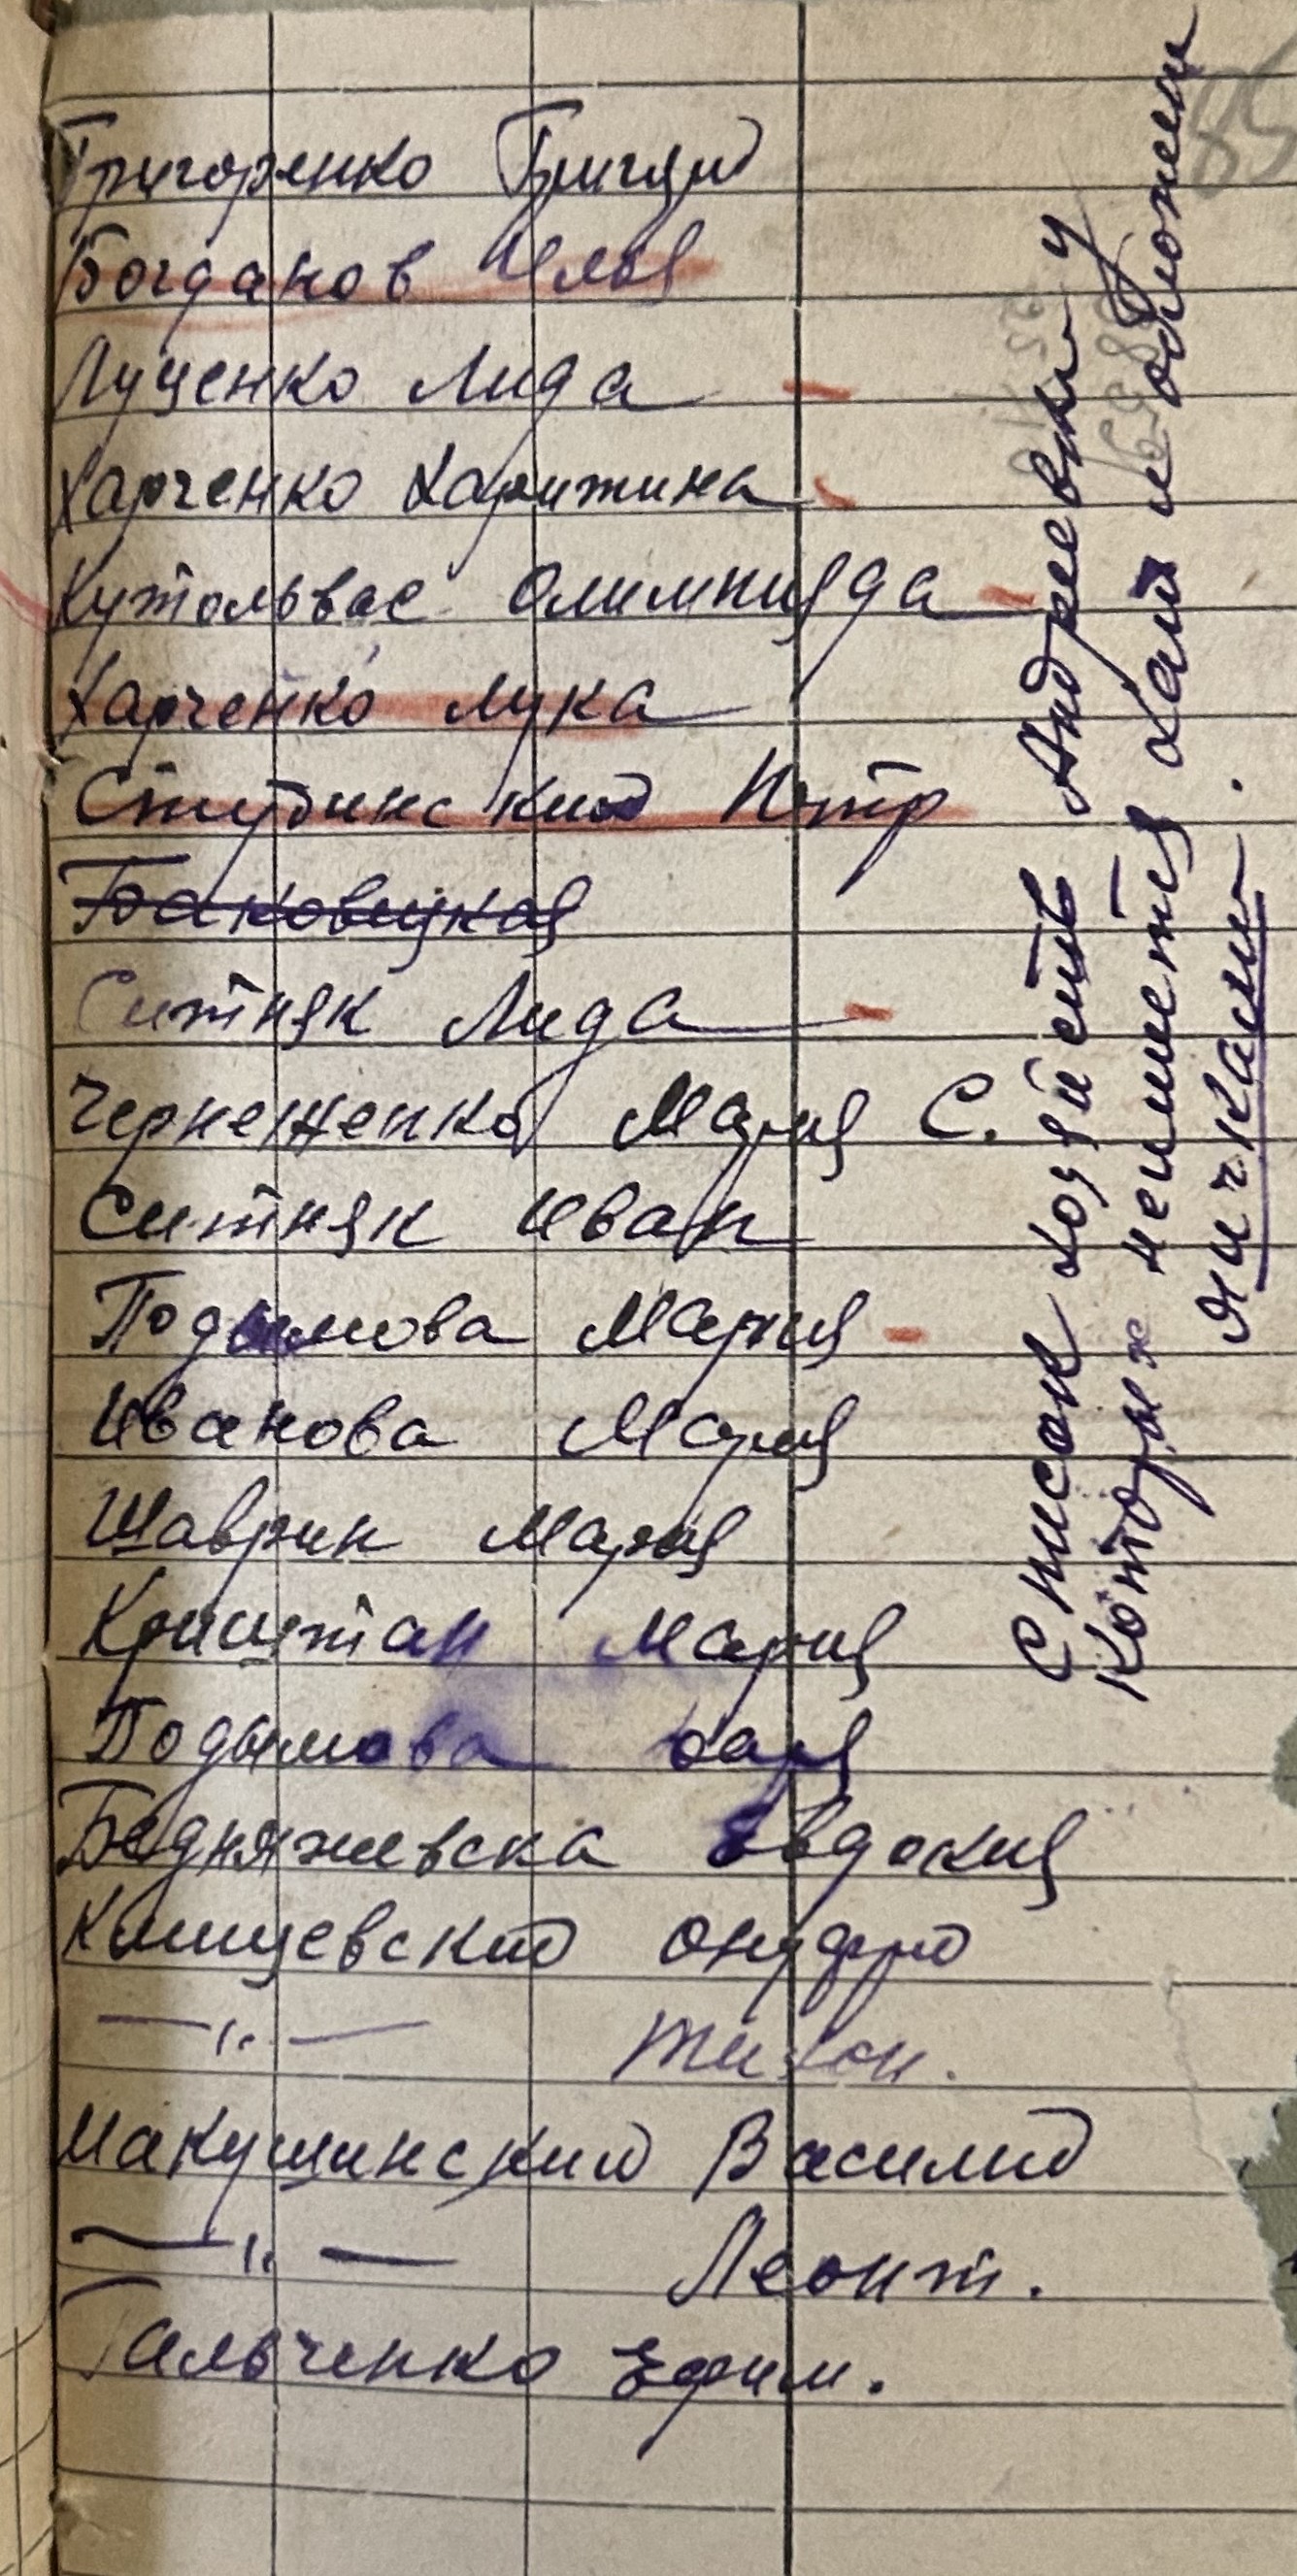 Григоренко Григорий
Богданов Илья
Луценко Лида
Харченко Харитина
Кутольвас Олимпияда
Харченко Лука
Студинский Петр
Баковецкая
Ситняк Лида
Чернеженко Мария С.
Ситняк Иван
Подымова Мария
Иванова Мария
Шаврин Мария
Криштан Мария
Подымова Дария
Бедняжевска Евдокия
Кишцевский Онуфрий
—"— Тихон.
Макушинский Василий
—"— Леонт.
Гальченко Ефим.
Список хозяйств Андреевки у
Которых неимется хат и обложены
яичками.
85